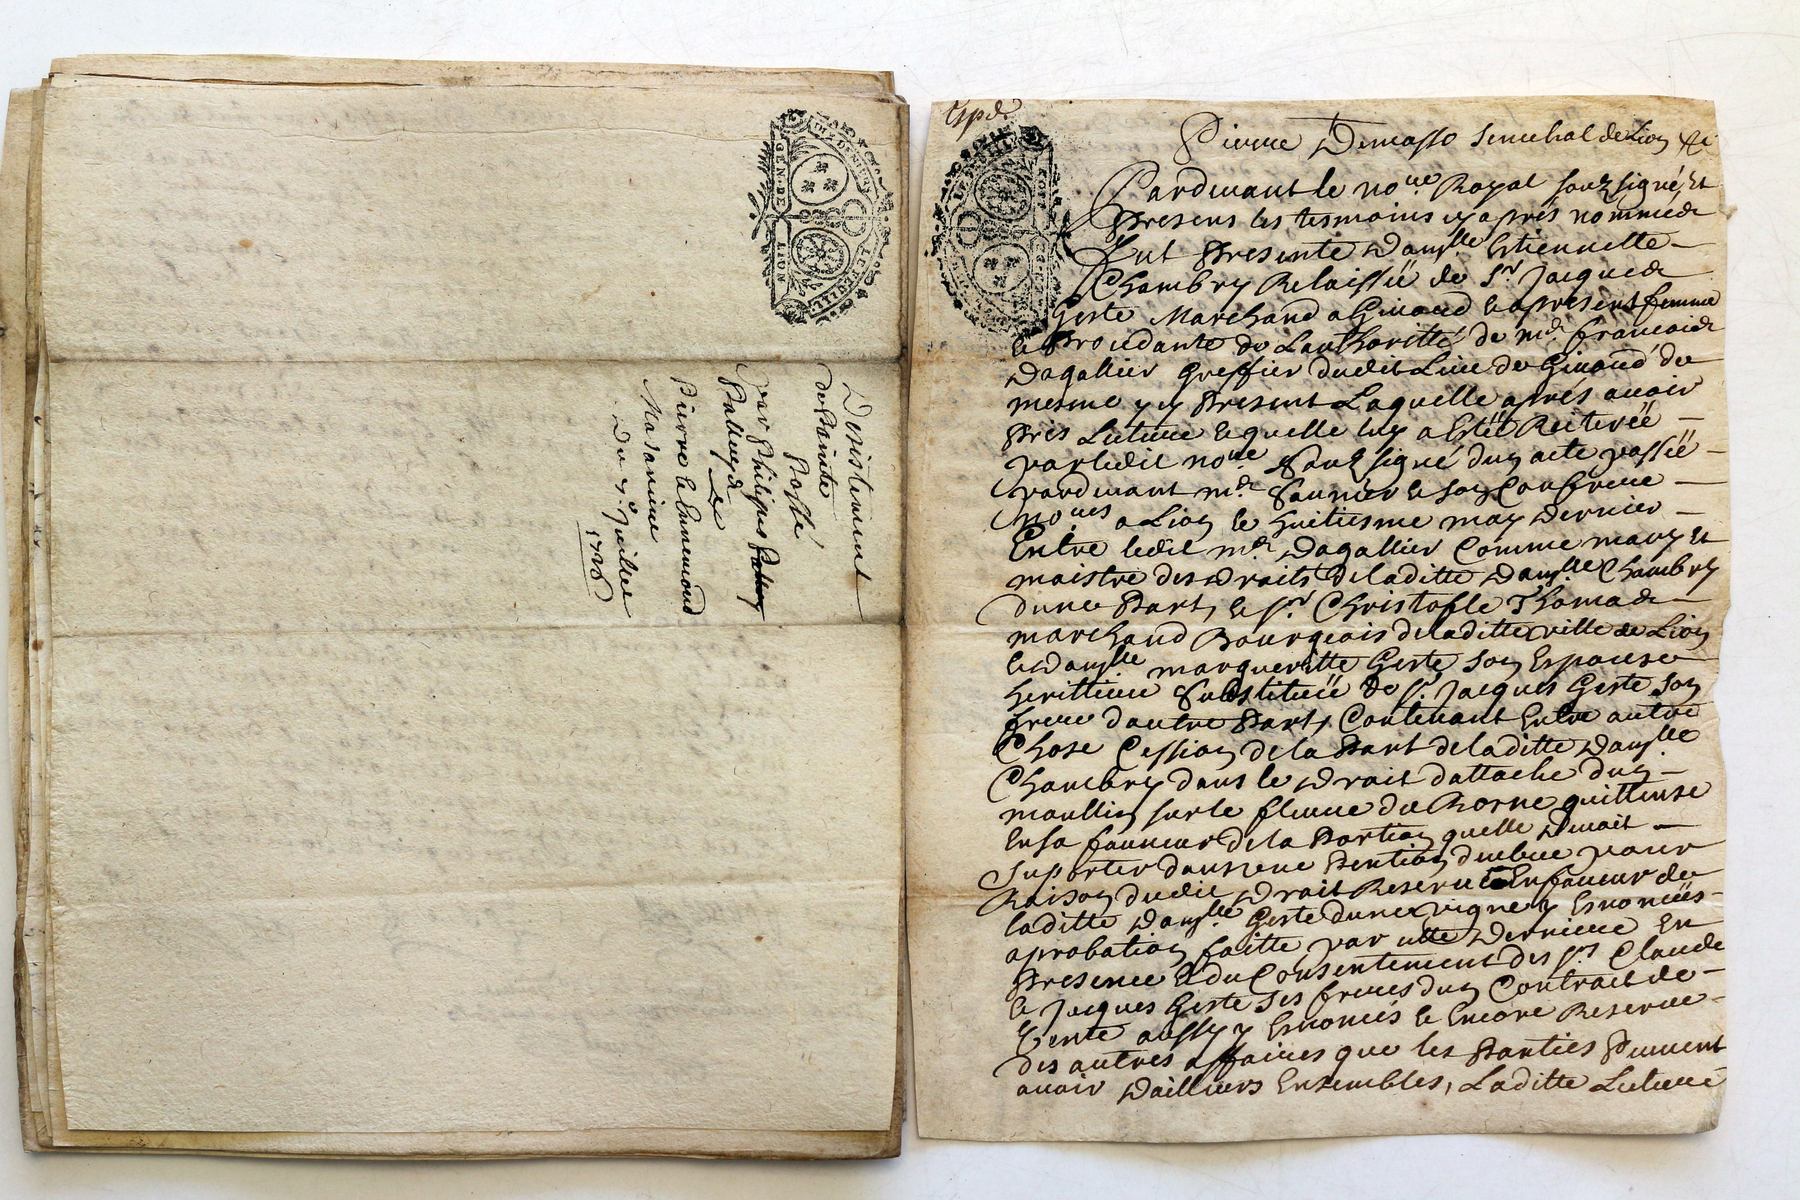 GEN·DE LION
DIX DENIERS
LE FEUILLE
Desistement
Passé
de Sainte
par Philipes
Palleyd
Pierre & Ennemond
Madinine
Du 9e Juillet
1728
Expde
Pierre Demasso Senechal de Lion &c
Pardevant le nore Royal souzsigné, et
Presens les tesmoins cy après nommés
Fut Presente Dauslle Estiennette
Chambry Relaissée de Sr Jacques
Geste Marchand a Givord & apresent femme
& Procedante de Lauthoritté de me francois
Dagallier Greffier dudit Lieu de Givord de
mesme y cy Present Laquelle après avoir
Pris Lecture & quelle luy a Estée Reiterée
par ledit nore Souzsigné dun acte passée
pardevant me Saunier & son Confrere
nores a Lion le huitiesme may Dernier
Entre ledit me Dagallier Comme mary et
maistre des droits de laditte Dauslle Chambry
dune Part, & sr Christofle Thomas
marchand Bourgeois de laditte ville de Lion
& Dauslle margueritte Geste son Espouse
herittiere Substituée de sr Jacques Geste son
frere dautre Part, Contenant Entre autre
Chose Cession de la Part de laditte Dauslle
Chambry dans le Droit dattache dun
moullin sur le fleuve du Rosne quittense
En sa faveur de la Portion quelle Devoit
Suporter dans une Pention deube pour
Raison dudit Droit Reserve En faveur de
laditte Dauslle Geste dune vigne y Enoncées
aprobation faitte par cette Derniere En
Presence & du Consentement des srs Claude
& Jacques Geste ses freres dun Contrait de
Vente aussy y Enoncés & Encore Reserve
des autres affaires que les Parties Peuvent
avoir Dailliurs Ensembles, Laditte Lecture